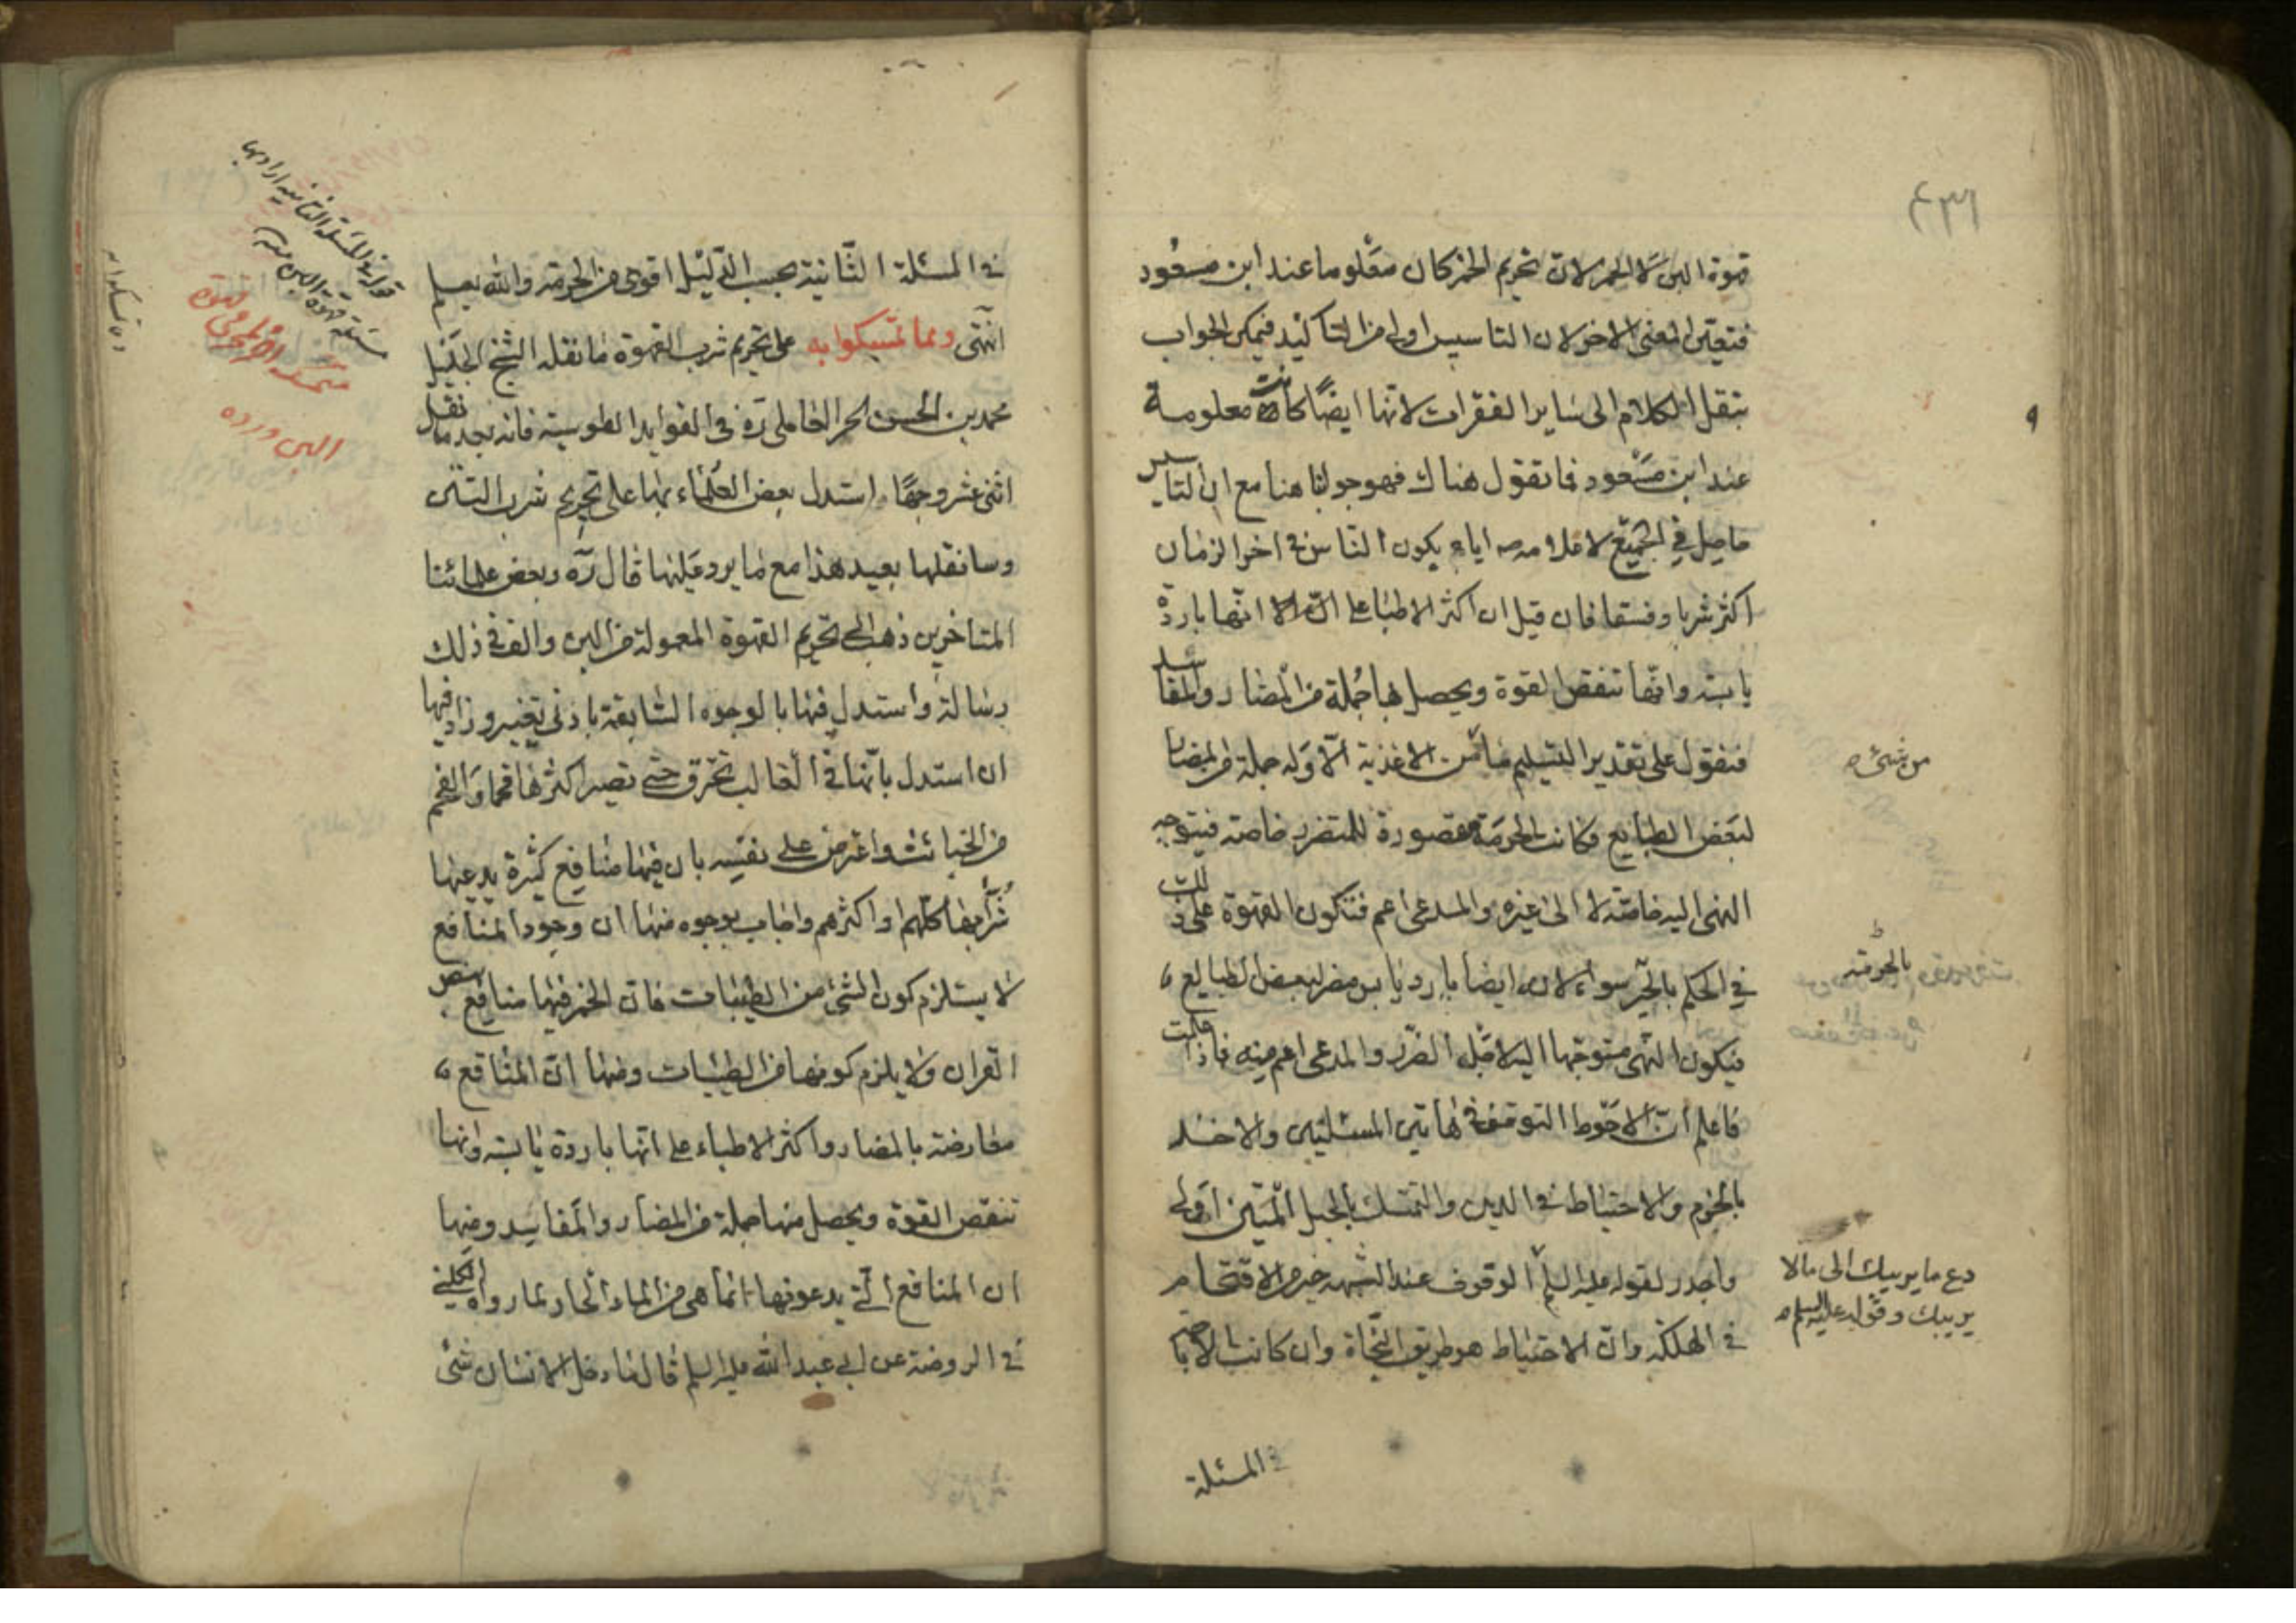 قهوة البن لا الخمر لان تحريم الخمر كان معلوما عند ابن مسعود
فتعين المعنى الاخر لان التاسيس اولى من التاكيد فيمكن الجواب
بنقل الكلام الى ساير الفقرات لانها ايضًا كانت معلومة
عند ابن مسعود فما تقول هناك فهو جوابنا هنا مع ان التاسيس
حاصل في الجميع لاعلامه اياه يكون الناس في اخر الزمان
اكثر شربا وفسقا فان قيل ان اكثر الاطباء على انها باردة
يابسة وانها تنقص القوة ويحصل بها جملة من المضار والمفاسد
فنقول على تقدير التسليم ما من الاغذية الا وله جملة من المضار
من شئ
لبعض الطبايع فكانت الحرمة مقصورة للمتضرر خاصة فيتوجه
النهى اليه خاصة لا الى غيره والمدعى اعم فتكون القهوة على ذلك
في الحكم سواء لان ايضا بارد يابس مضر لبعض الطبايع
بالحرمة
فيكون النهى متوجها اليه لاجل الضرر والمدعى اعم منه فاذا علمت
فاعلم ان الاحوط التوقف في هاتين المسئلتين والاخذ
بالحزم والاحتياط في الدين والتمسك بالحبل المتين اولى
واجدر لقوله عليه السلم الوقوف عند الشبهه خير من الاقتحام
دع ما يريبك الى مالا
يريبك وقوله عليه السلم
في الهلكة وان الاحتياط هو طريق النجاة وان كانت الاباحة
في المسئلة
في المسئلة الثانية بحسب الدليل اقوى من الحرمة والله يعلم
قوله في المسئلة الثانية اراد بها
مسئلة قهوة البن
انتهى ومما تمسكوا به على تحريم شرب القهوة ما نقله الشيخ الجليل
البن ورده
محمد بن الحسن الحر العاملى ره في الفوايد الطوسية فانه بعد ما نقل
اثنى عشر وجهًا استدل بعض العلماء بها على تحريم شرب التتن
وسانقلها بعيد هذا مع ما يرد عليها قال ره وبعض علمائنا
المتاخرين ذهب الى تحريم القهوة المعمولة من البن والف في ذلك
رسالة واستدل فيها بالوجوه السابقة بادنى تغيير وزاد فيها
ان استدل بانها في الغالب تحرق حتى تصير اكثرها فحما والفحم
من الخبائث واعترض على نفسه بان فيها منافع كثيرة يدعيها
شرابها كلهم او اكثرهم واجاب بوجوه منها ان وجود المنافع
لا يستلزم كون الشئ من الطيبات فان الخمر فيها منافع بنص
القران ولا يلزم كونها من الطيبات ومنها ان المنافع
معارضة بالمضار واكثر الاطباء على انها باردة يابسة وانها
تنقص القوة ويحصل منها جملة من المضار والمفاسد ومنها
ان المنافع التي يدعونها انما هى من الماء الحار لما رواه الكلينى
في الروضة عن ابي عبد الله عليه السلم قال ما دخل الانسان شئ